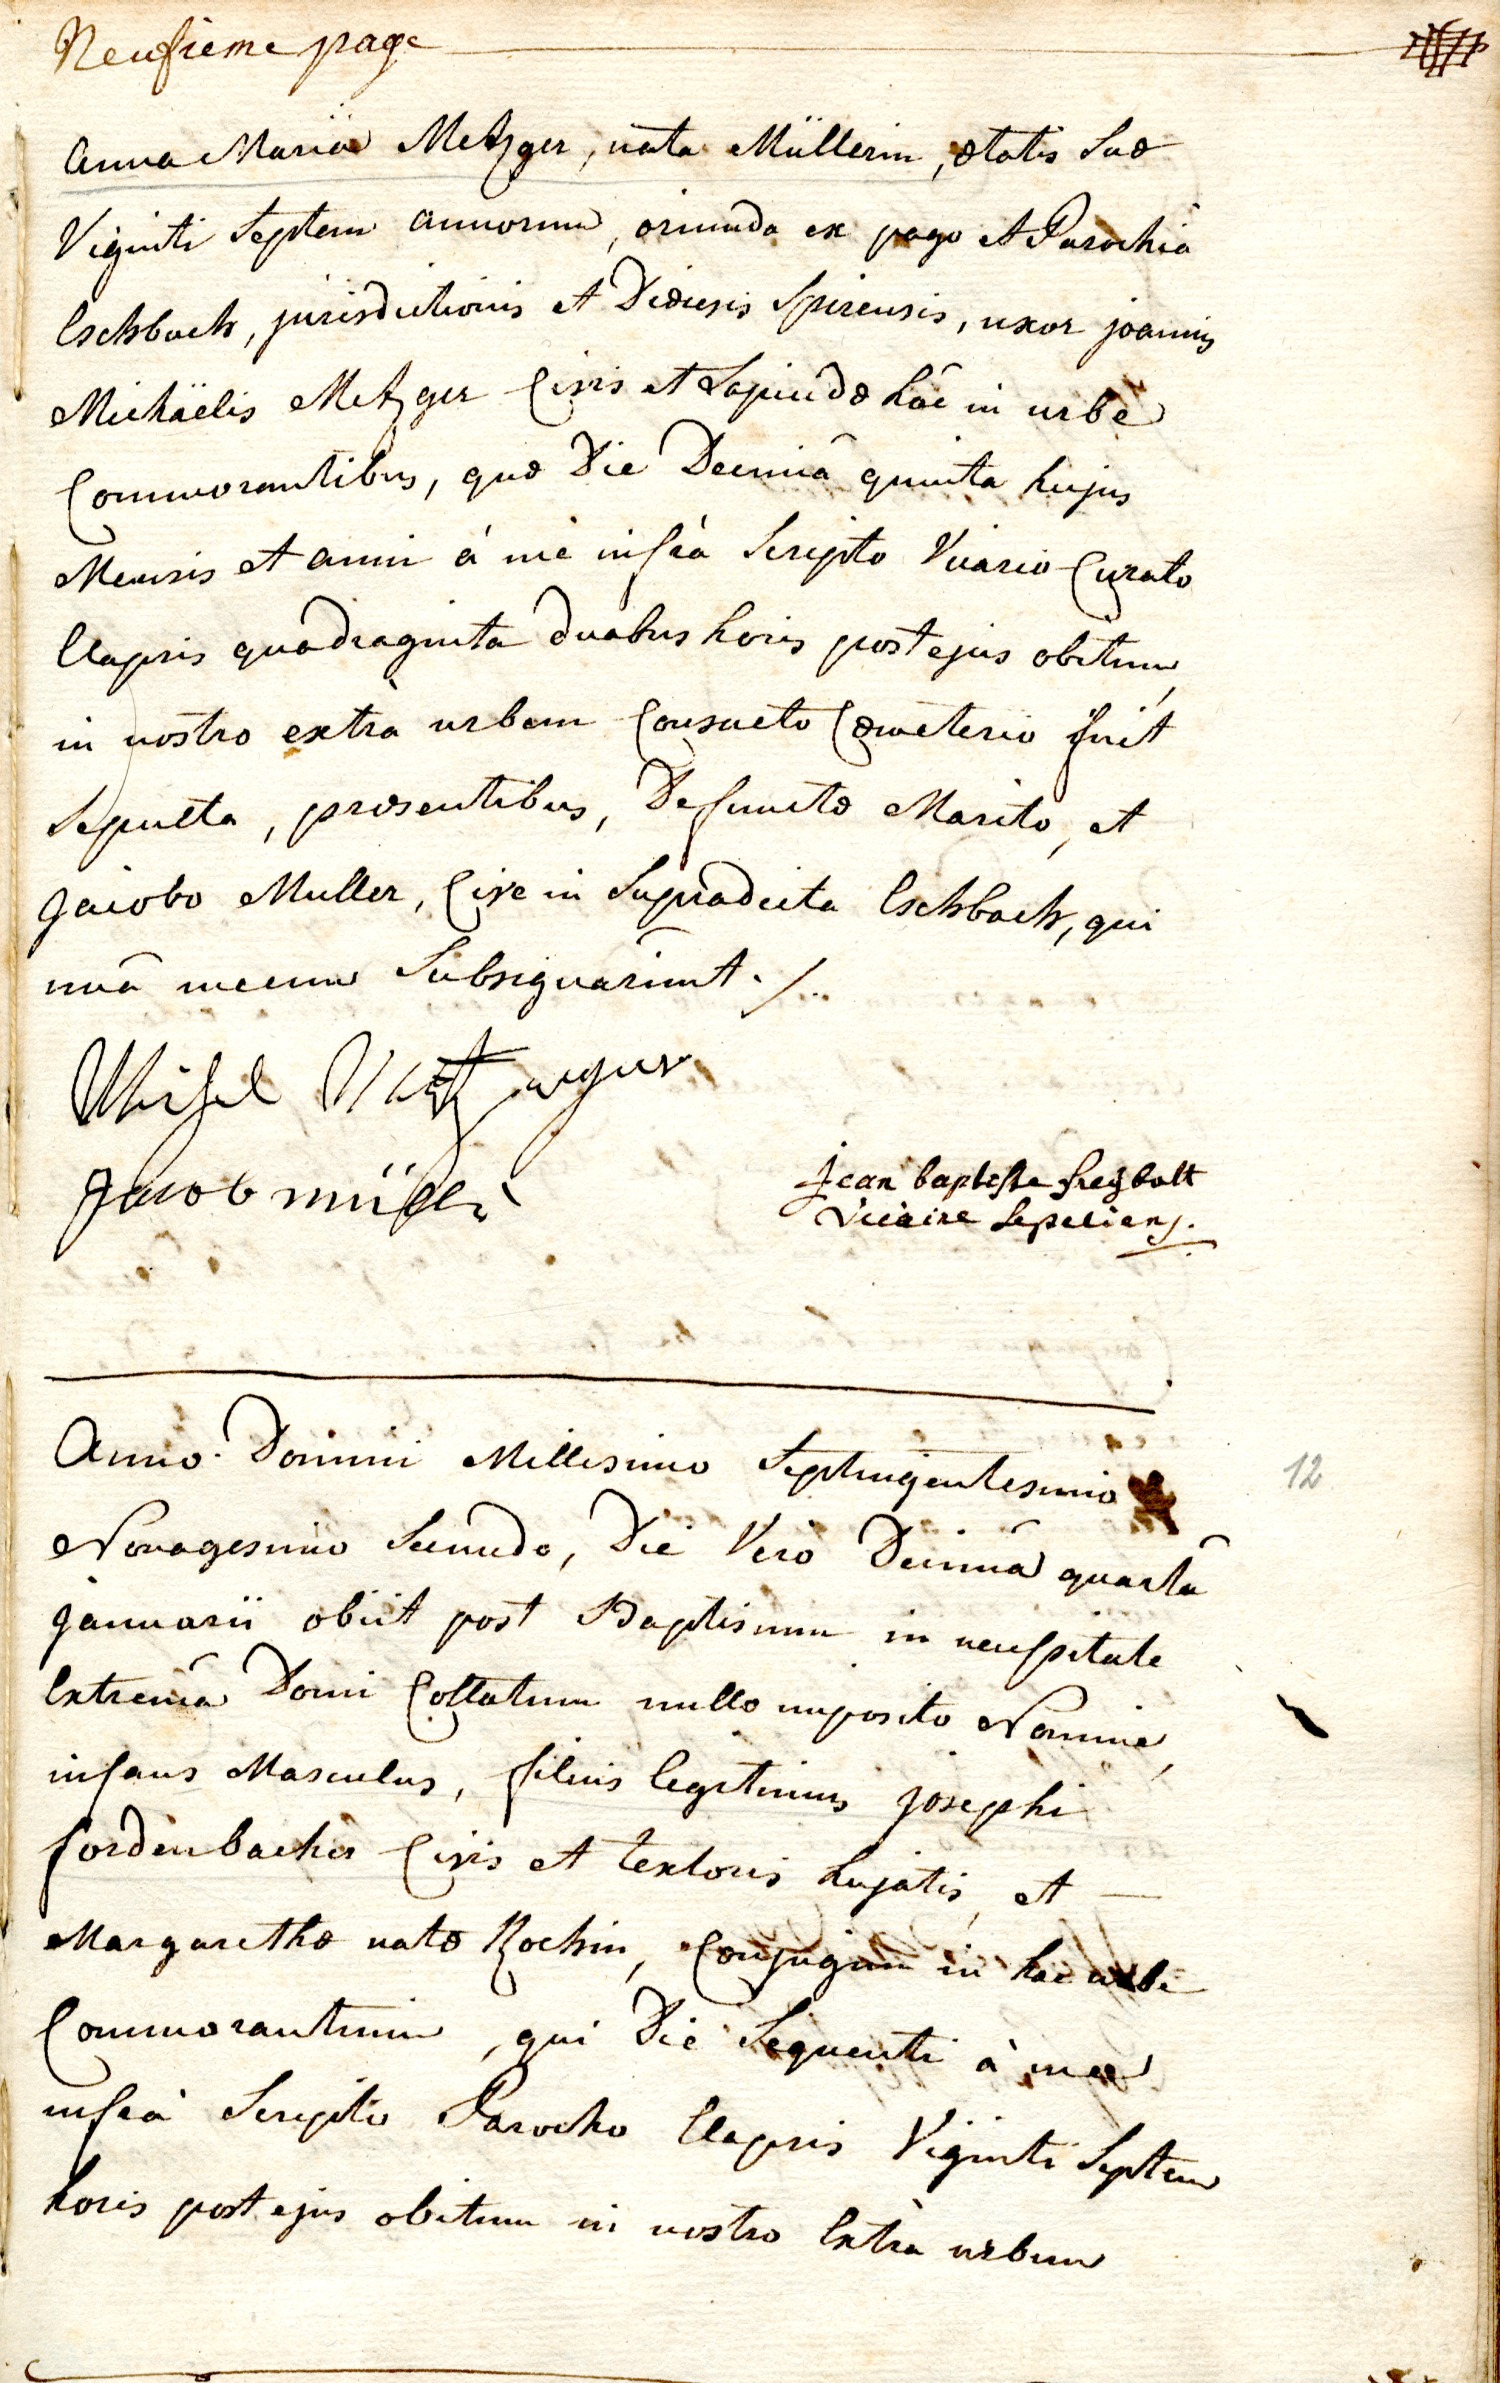 Neufieme page
Anna Maria Metzger, nata Müllerin, ætatis suæ
Viginti Septem annorum, oriunda ex pago et Parochiâ
Eschbach, jurisdictionis et Diœcesis Spirensis, uxor joannis
Michäelis Metzger Civis et Lapicidæ hâc in urbe
Commorantibus, quæ Die Decimâ quinta hujus
Mensis et anni á me infrà Scripto Vicario Curato
Elapsis quadraginta duabus horis post ejus obitum,
in nostro extrà urbem Consueto Cœmeterio fuit
Sepulta, præsentibus, Defunctæ Marito, et
Jacobo Muller, Cive in Supradicta Eschbach, qui
unâ mecum Subsignarunt ./..
Michel Metzger
Jacob müller
jean baptiste freÿbolt
Vicaire Sepeliens.
Anno Domini Millesimo Septingentesimo
Nonagesimo Secundo, Die Verò Decimâ quartâ
januarii obiit post Baptismum in necessitate
Extremâ Domi Collatum nullo imposito Nomine,
infans Masculus, filius legitimus josephi
fordenbacher Civis et textoris hujatis, et
Margarethæ natæ Kochin, Conjugum in hac urbe
Commorantium, qui Die Sequenti à me
infrà Scripto Parocho Elapsis Viginti Septem
horis post ejus obitum in nostro Extrà urbem
12